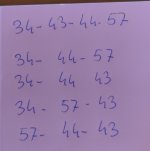 34-43-44-57
34- 44-57
34- 44 43
34- 57-43
57- 44-43